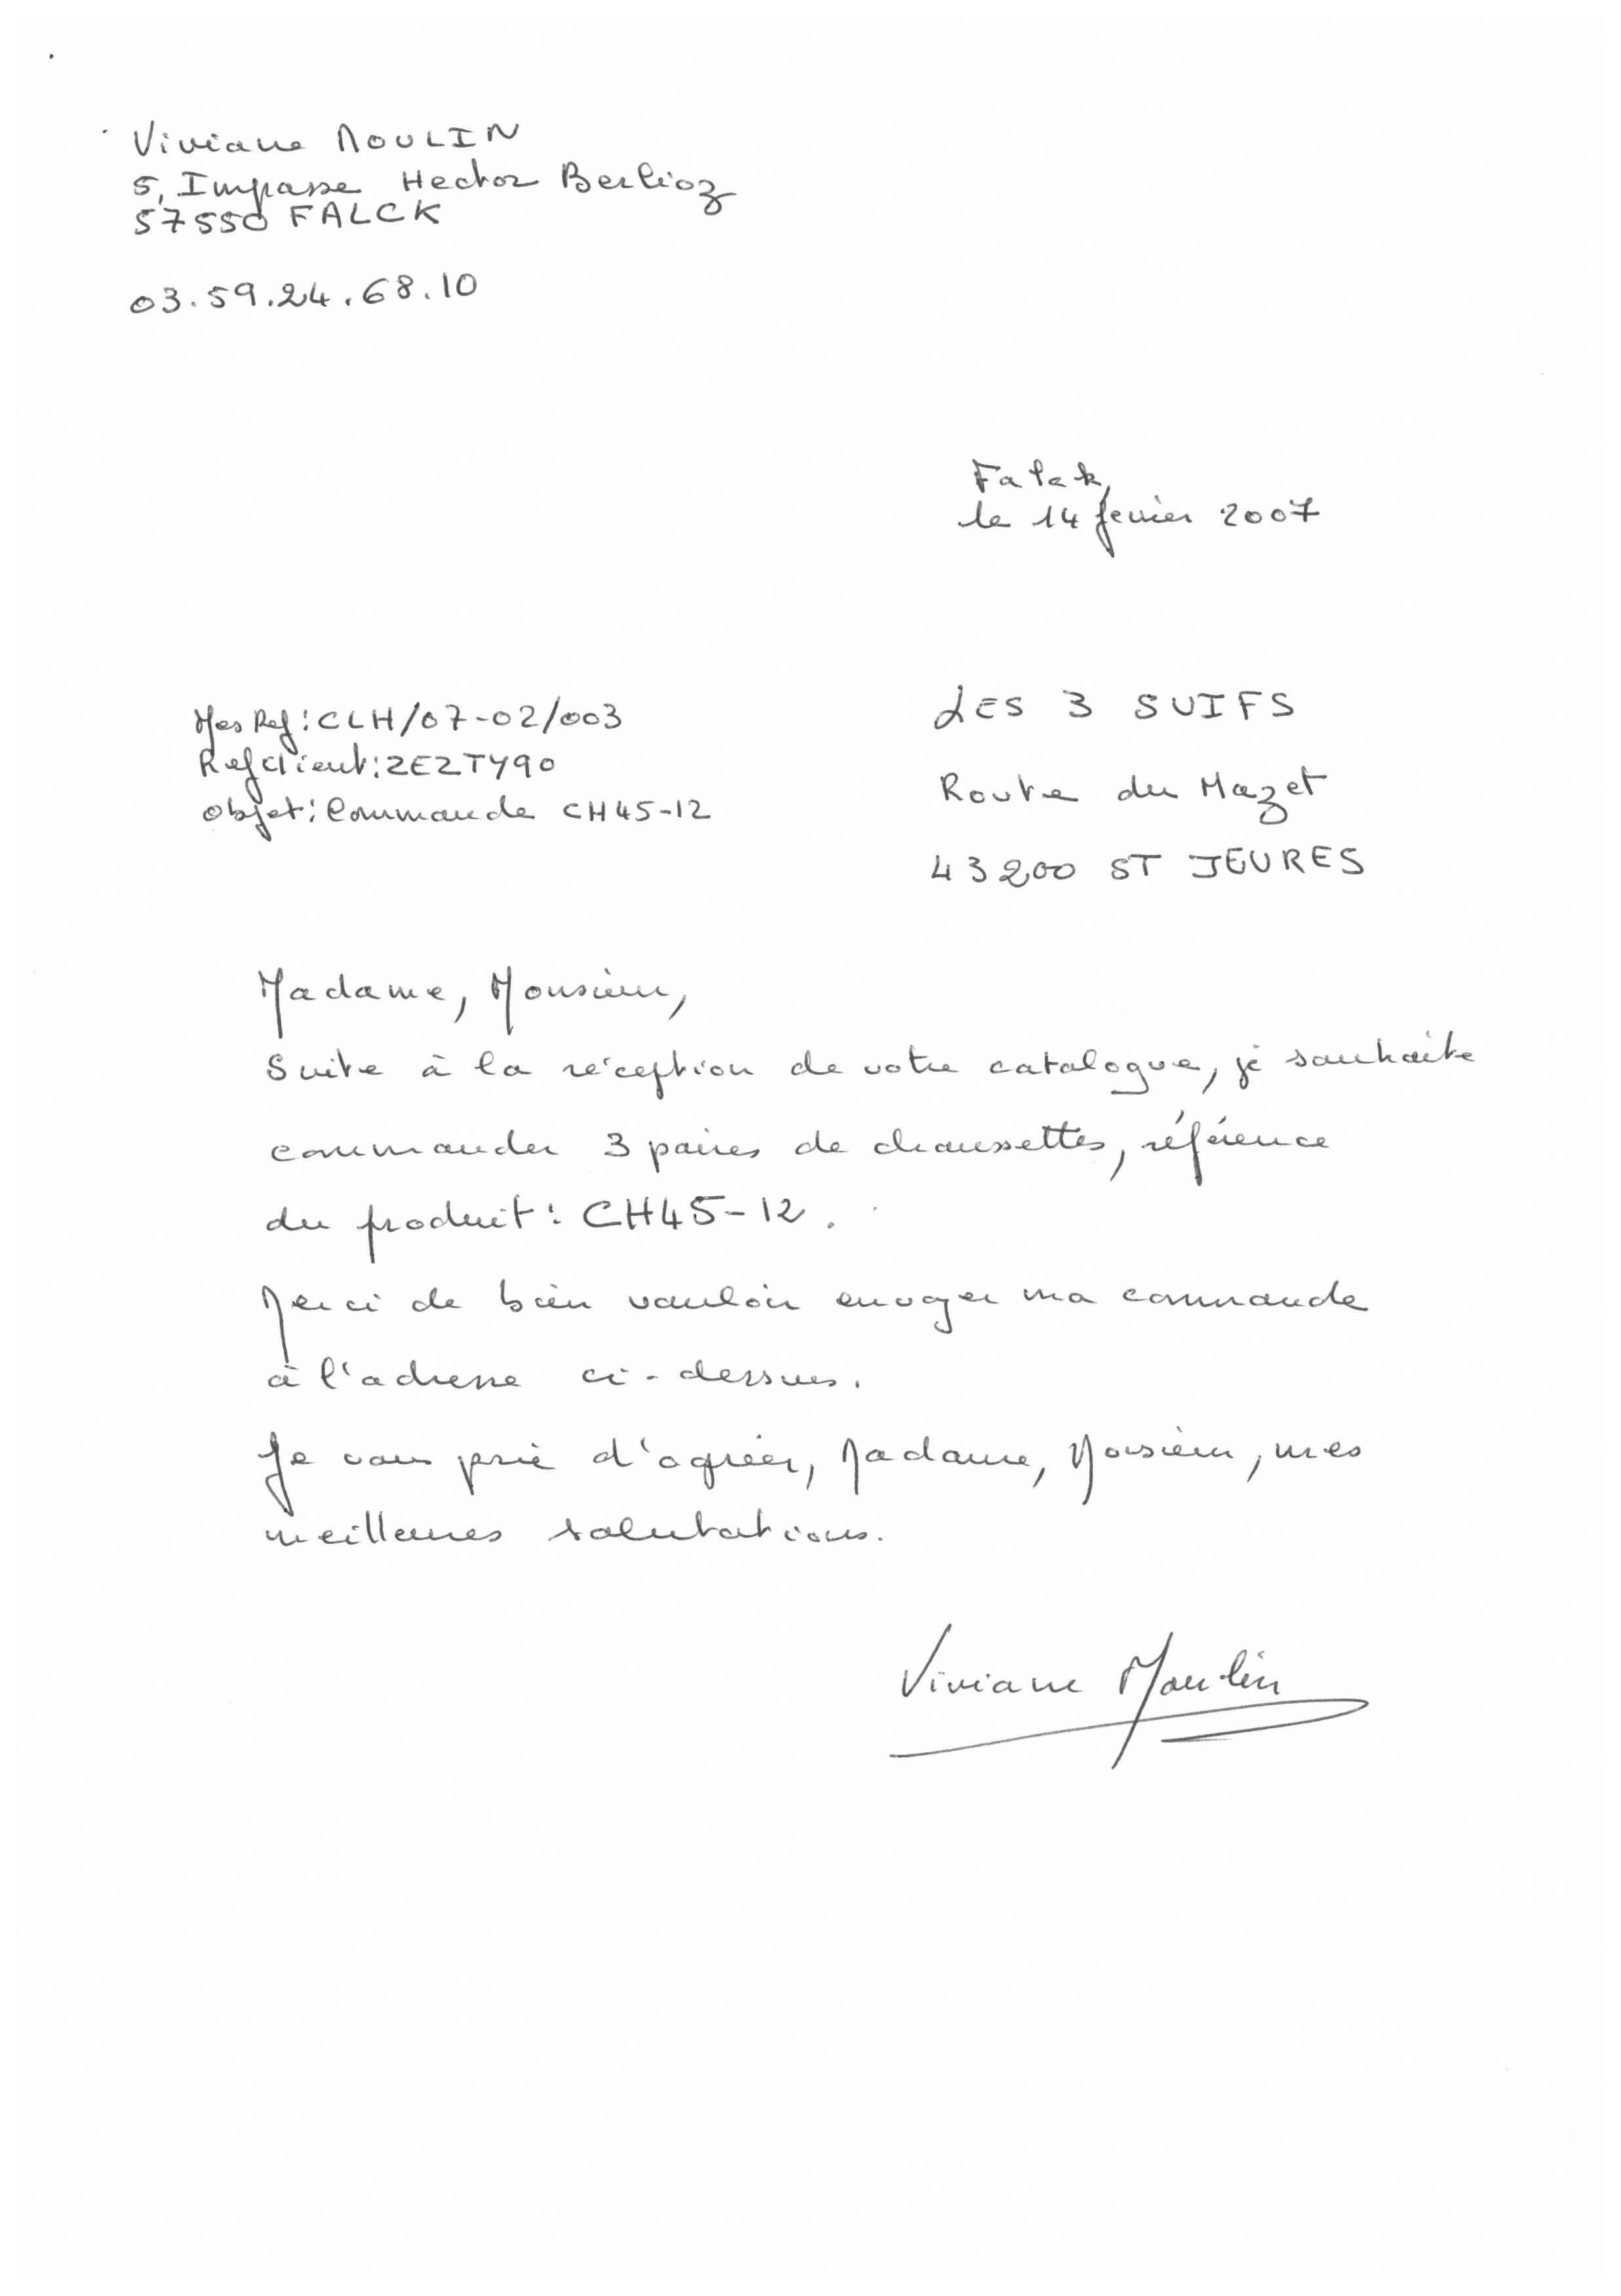 Viviane MOULIN
5, Impasse Hector Berlioz
57550 FALCK
03.59.24.68.10
Falck,
le 14 fevrier 2007
Mes Ref : CLH/07-02/003
Ref client : ZEZTY90
Objet : Commande CH45-12
LES 3 SUIFS
Route du Mazet
43200 ST JEURES
Madame, Monsieur,
Suite à la réception de votre catalogue, je souhaite
commander 3 paires de chaussettes, référence
du produit : CH45-12.
Merci de bien vouloir envoyer ma commande
à l'adresse ci-dessus.
Je vous prie d'agréer, Madame, Monsieur, mes
meilleures salutations.
Viviane Moulin